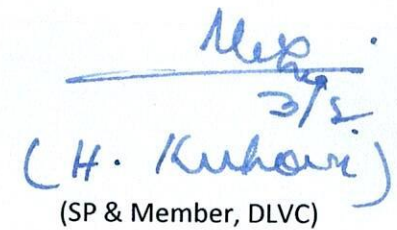 3/2
(H. Kuhovi)
(SP & Member, DLVC)